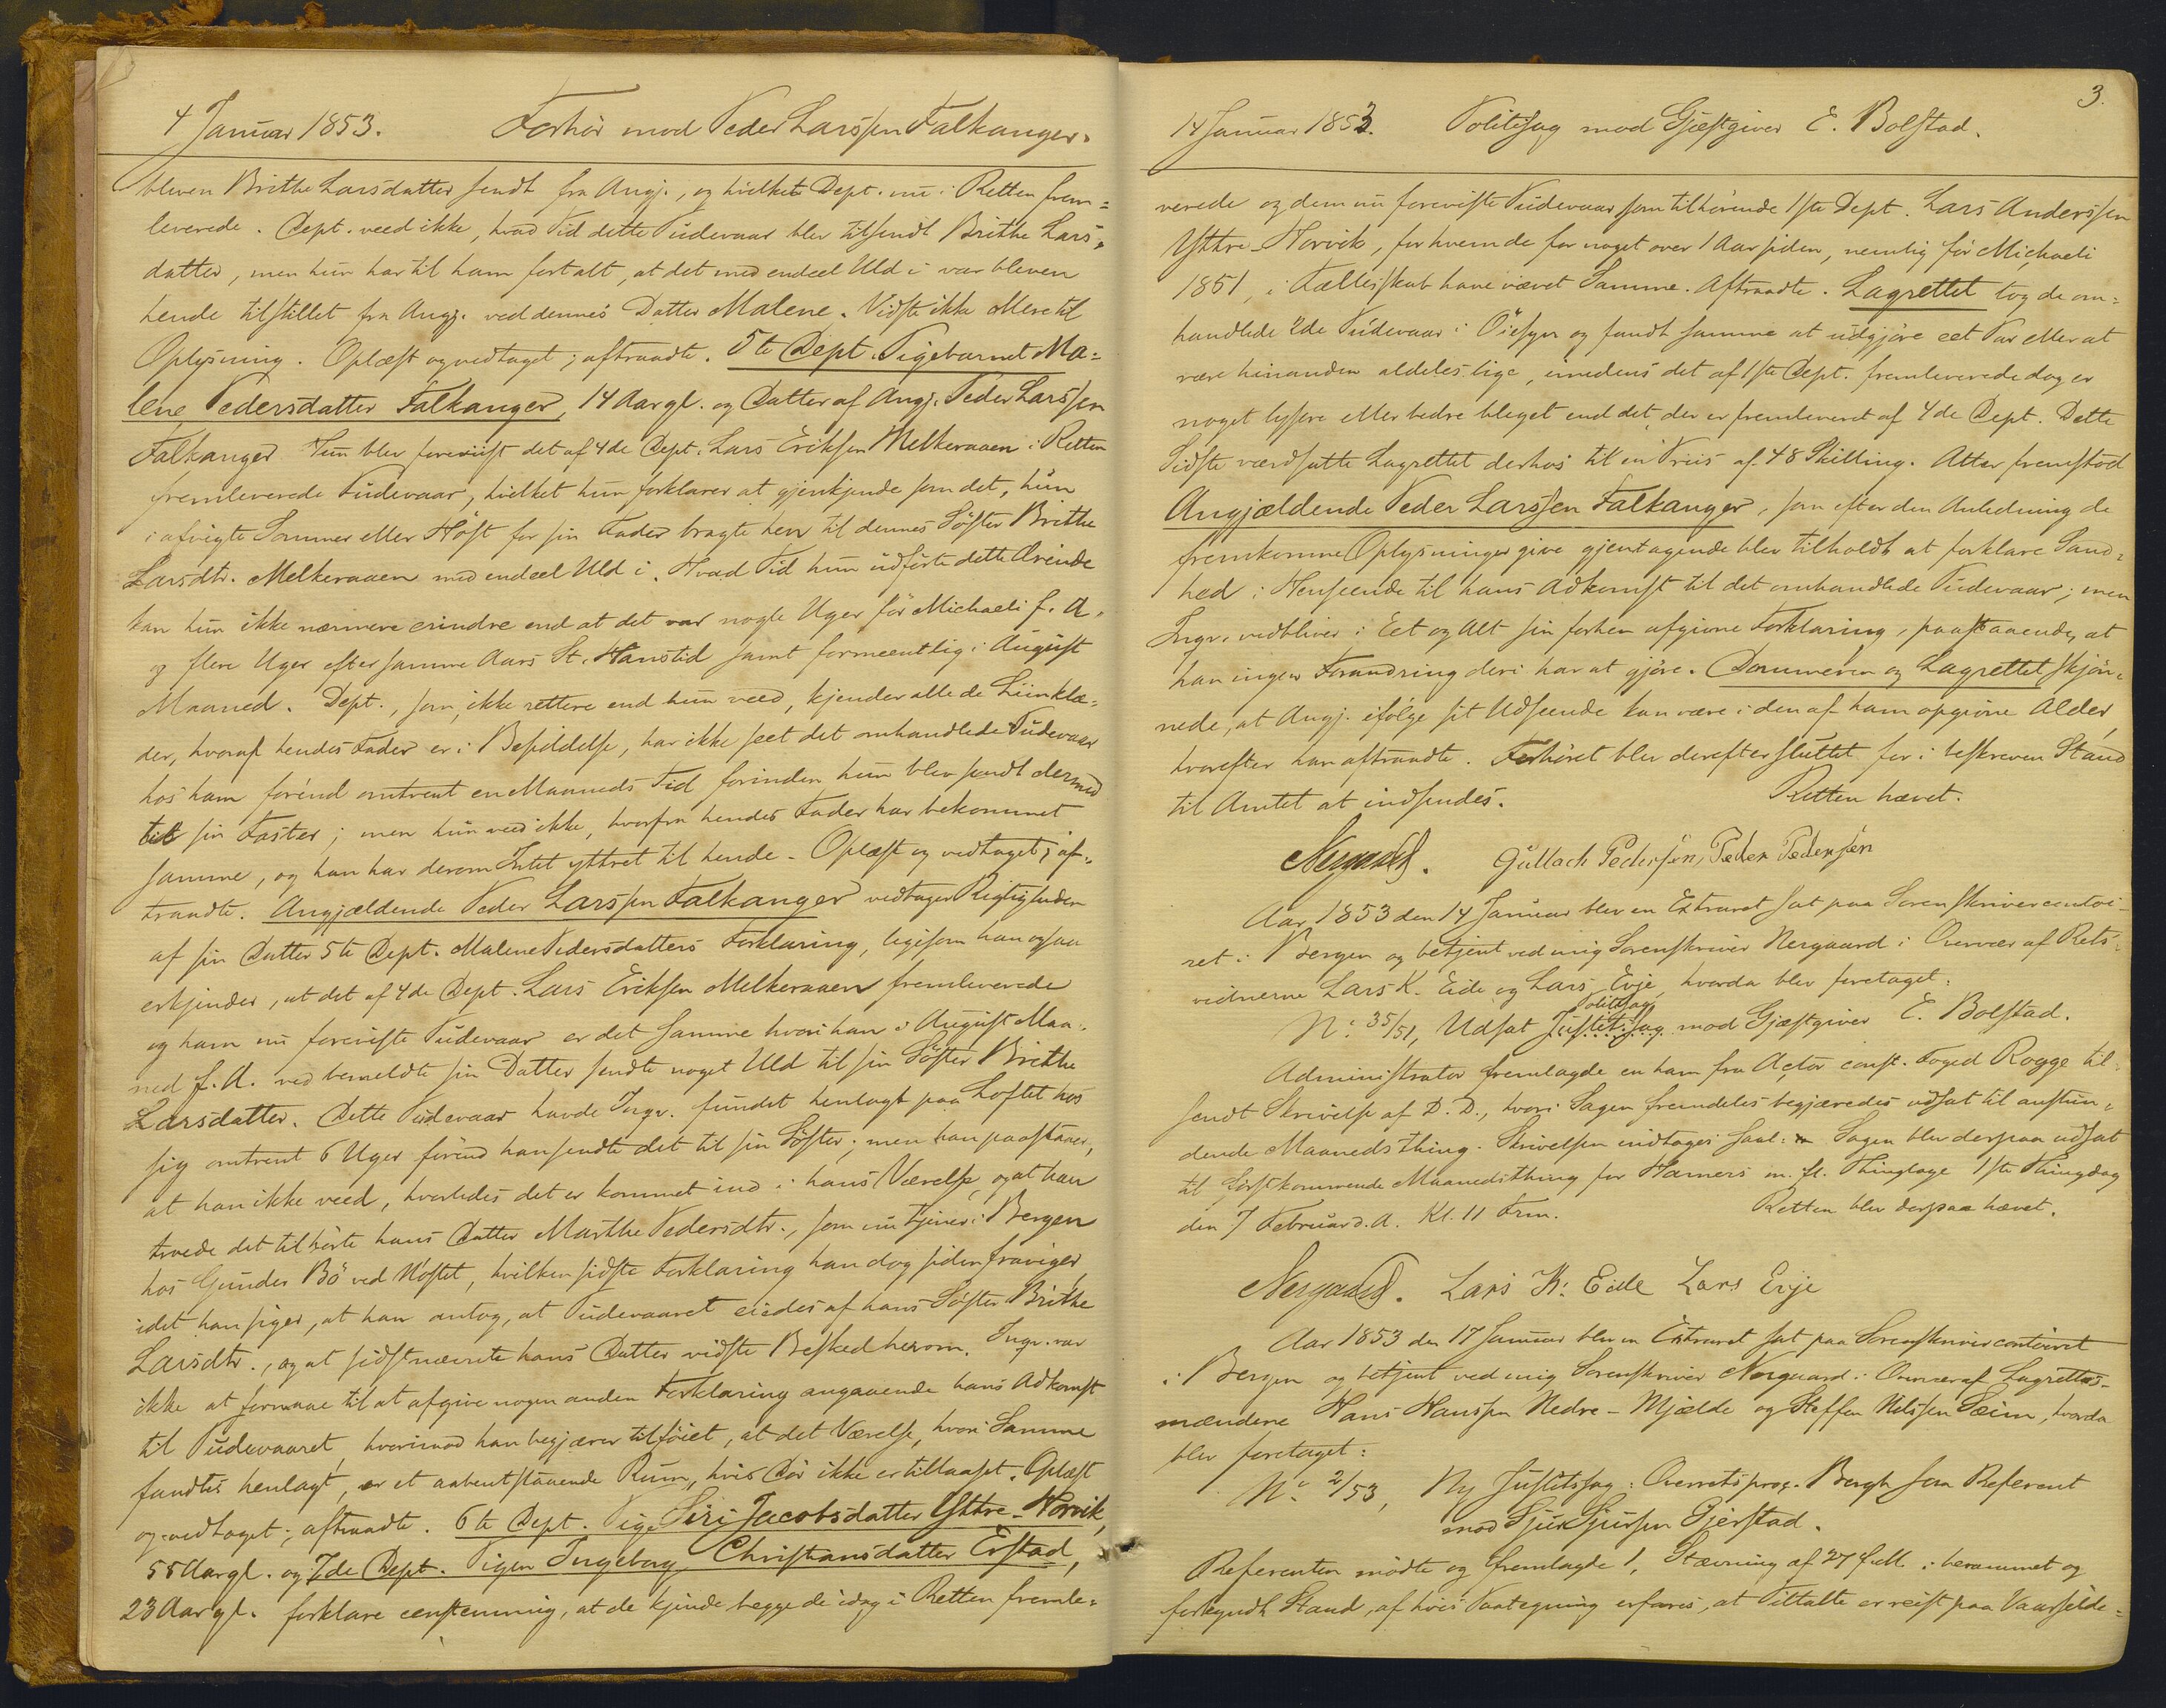 4 Januar 1853. Forhör mod Peder Larssen Falkanger.
bleven Brithe Larsdatter sendt fra Angj., og hvilket Dept. nu i Retten frem=
leverede. Dept. veed ikke, hvad Tid dette Pudevaar blev tilsendt Brithe Lars=
datter, men hun har til ham fortalt, at det med endeel Uld i var bleven
hende tilstillet fra Angj. ved dennes Datter Malene. Vidste ikke Mere til
Oplysning. Oplæst og vedtaget; aftraadte. 5te Dept. Pigebarnet Ma=
lene Pedersdatter Falkanger, 14 Aar gl. og Datter af Angj. Peder Larssen
Falkanger Hun blev foreviist det af 4de Dept. Lars Eriksen Melkeraaen i Retten
fremleverede Pudevaar, hvilket hun forklarer at gjenkjende som det, hun
i afvigte Sommer eller Höst for sin Fader bragte hen til dennes Söster Brithe
Larsdtr. Melkeraaen med endeel Uld i. Hvad Tid hun udförte dette Ærinde
kan hun ikke nærmere erindre end at det var nogle Uger för Michaeli f. A.
og flere Uger efter samme Aars St. Hanstid samt formeentlig i August
Maaned. Dept., som, ikke rettere end hun veed, kjender alle de Liinklæ=
der, hvoraf hendes Fader er i Besiddelse, har ikke seet det omhandlede Pudevaar
hos ham förend omtrent en Maaneds Tid forinden hun blev sendt dermed
til sin Faster; men hun veed ikke, hvorfra hendes Fader har bekommet
samme, og han har derom Intet yttret til hende. Oplæst og vedtaget; af=
traadte. Angjældende Peder Larssen Falkanger vedtager Rigtigheden
af sin Datter 5te Dept. Malene Pedersdatters Forklaring, ligesom han ogsaa
erkjender, at det af 4de Dept. Lars Eriksen Melkeraaen fremleverede
og ham nu foreviste Pudevaar er det samme hvori han i August Maa=
ned f. A. ved bemeldte sin Datter sendte noget Uld til sin Söster Brithe
Larsdatter. Dette Pudevaar havde Inqv. fundet henlagt paa Loftet hos
sig omtrent 6 Uger förend han sendte det til sin Söster; men han paastaaer,
at han ikke veed, hvorledes det er kommet ind i hans Værelse, og at han
troede det tilhörte hans Datter Marthe Pedersdtr., som nu tjener i Bergen
hos Gunder Bö ved Nöstet, hvilken sidste Forklaring han dog siden fraviger,
idet han siger, at han antog, at Pudevaaret eiedes af hans Söster Brithe
Larsdtr., og at sidstnævnte hans Datter vidste Besked herom. Inqv. var
ikke at formaae til at afgive nogen anden Forklaring angaaende hans Adkomst
til Pudevaaret, hvorimod han begjærer tilföiet, at det Værelse, hvori Samme
fandtes henlagt, er et aabentstaaende Rum, hvis Dör ikke er tillaaset. Oplæst
og vedtaget; aftraadte. 6te Dept. Pige Siri Jacobsdatter Yttre-Horvik,
55 Aar gl. og 7de Dept. Pigen Ingeborg Christiansdatter Erstad,
23 Aar gl. forklare eenstemmig, at de kjende begge de idag i Retten fremle=
3.
14 Januar 1853. Politisag mod Gjæstgiver E. Bolstad.
verede og dem nu foreviste Pudevaar som tilhörende 1ste Dept. Lars Anderssen
Yttre-Horvik, for hvem de for noget over 1 Aar siden, nemlig för Michaeli
1851, i Fællesskab have vævet Samme. Aftraadte. Lagrettet tog de om=
handlede 2de Pudevaar i Öiesyn og fandt samme at udgjöre eet Par eller at
være hinanden aldeles lige, imedens det af 1ste Dept. fremleverede dog er
noget lysere eller bedre bleget end det, der er fremleveret af 4de Dept. Dette
Sidste værdsatte Lagrettet derhos til en Priis af 48 Skilling. Atter fremstod
Angjældende Peder Larssen Falkanger, som efter den Anledning de
fremkomne Oplysninger give gjentagende blev tilholdt at forklare Sand=
hed i Henseende til hans Adkomst til det omhandlede Pudevaar; men
Inqv. vedbliver i Eet og Alt sin forhen afgivne Forklaring, paastaaende, at
han ingen Forandring deri har at gjöre. Dommeren og Lagrettet skjön=
nede, at Angj. ifölge sit Udseende kan være i den af ham opgivne Alder,
hvorefter han aftraadte. Forhöret blev derefter sluttet for i beskreven Stand
til Amtet at indsendes. Retten hævet.
Nergaard. Gullach Pedersen, Peder Pedersen
Aar 1853 den 14 Januar blev en Extraret sat paa Sorenskrivercontoi-
ret i Bergen og betjent ved mig Sorenskriver Nergaard i Overvær af Rets=
vidnerne Lars K. Eide og Lars Evje, hvorda blev foretaget:
Politisag
No. 35/51, Udsat Justitssag mod Gjæstgiver E. Bolstad.
Administrator fremlagde en ham fra Actor const. Foged Rogge til=
sendt Skrivelse af D. D., hvori Sagen fremdeles begjæredes udsat til anstun=
dende Maanedsthing. Skrivelsen indtages saal: Sagen blev derpaa udsat
til förstkommende Maanedsthing for Hamers m. fl. Thinglage 1ste Thingdag
den 7 Februar d. A. Kl. 11 Frm. Retten blev derpaa hævet.
Nergaard. Lars K: Eide Lars Evje
Aar 1853 den 17 Januar blev en Extraret sat paa Sorenskrivercontoiret
i Bergen og betjent ved mig Sorenskriver Nergaard i Overvær af Lagrettes-
mændene Hans Hanssen Nedre-Mjelde og Steffen Nilssen Seim, hvorda
blev foretaget:
No. 2/53, Ny Justitssag: Overretsproc. Bergh som Referent
mod Sjur Sjursen Gjerstad.
Referenten mödte og fremlagde 1, Stævning af 27 f. M. i berammet og
forkyndt Stand, af hvis Paategning erfares, at Tiltalte er reist paa Vaarsilde=